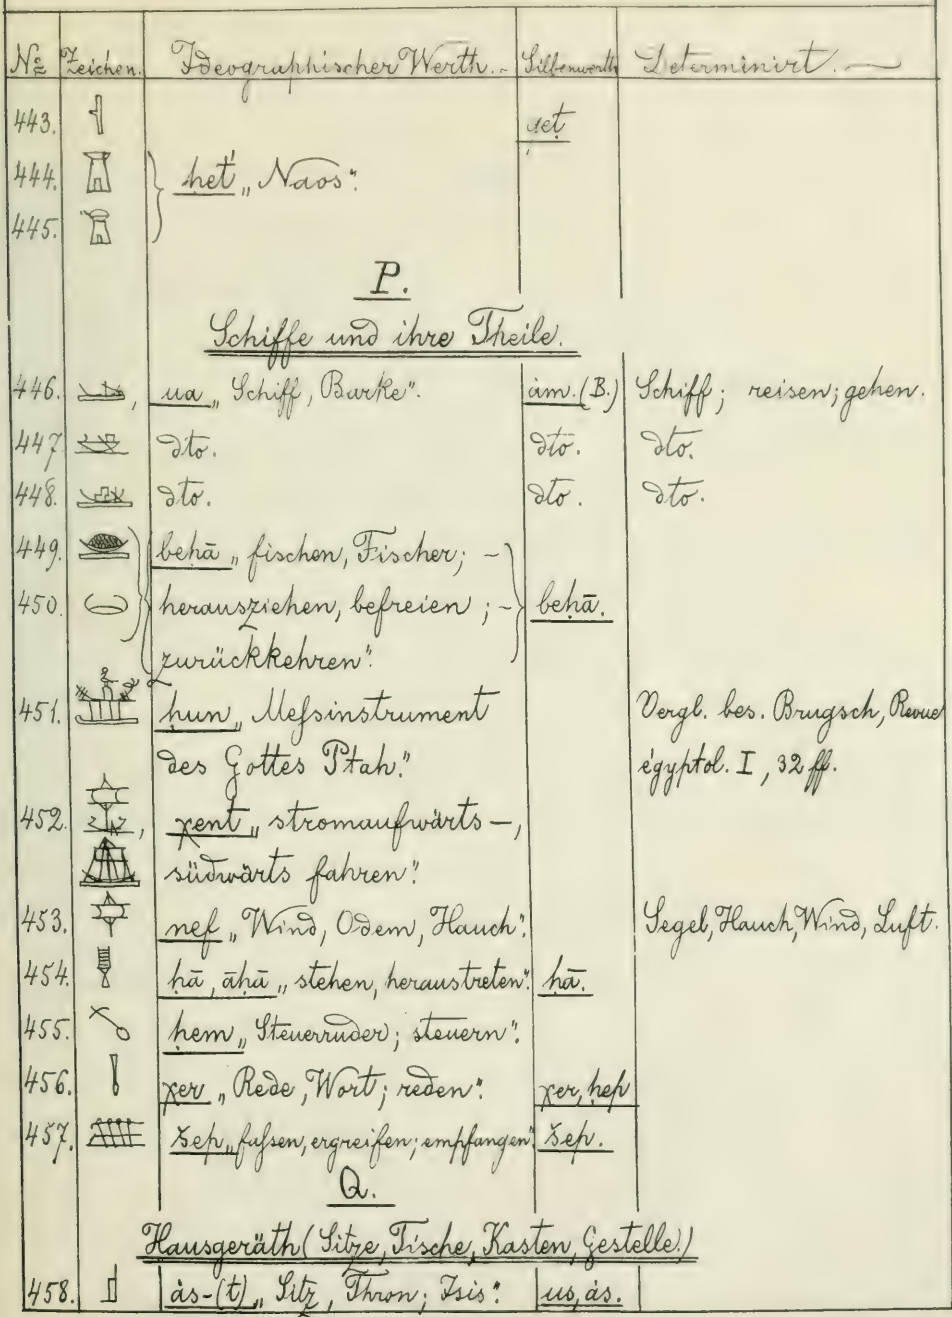 No Zeichen. Ideographischer Werth. Silbenwerth Determinirt.
443. χet
444. ḥet „Naos“.
445.
P.
Schiffe und ihre Theile.
446. , ua „Schiff, Barke“. ȧm. (B.) Schiff; reisen; gehen.
447. dto. dto. dto.
448. dto. dto. dto.
449. beḥā „fischen, Fischer; –
450. herausziehen, befreien; – beḥā.
zurückkehren“.
451. ḥun „Meſsinstrument Vergl. bes. Brugsch, Revue
des Gottes Ptah.“ égyptol. I, 32 ff.
452. , χent „stromaufwärts –,
südwärts fahren“.
453. nef „Wind, Odem, Hauch“. Segel, Hauch, Wind, Luft.
454. ḥā, āḥā „stehen, heraustreten“. ḥā.
455. ḥem „Steuerruder; steuern“.
456. χer „Rede, Wort; reden“. χer, ḥep
457. šep „faſsen, ergreifen; empfangen“ šep.
Q.
Hausgeräth (Sitze, Tische, Kasten, Gestelle.)
458. ȧs-(t) „Sitz, Thron; Isis“. us, ȧs.